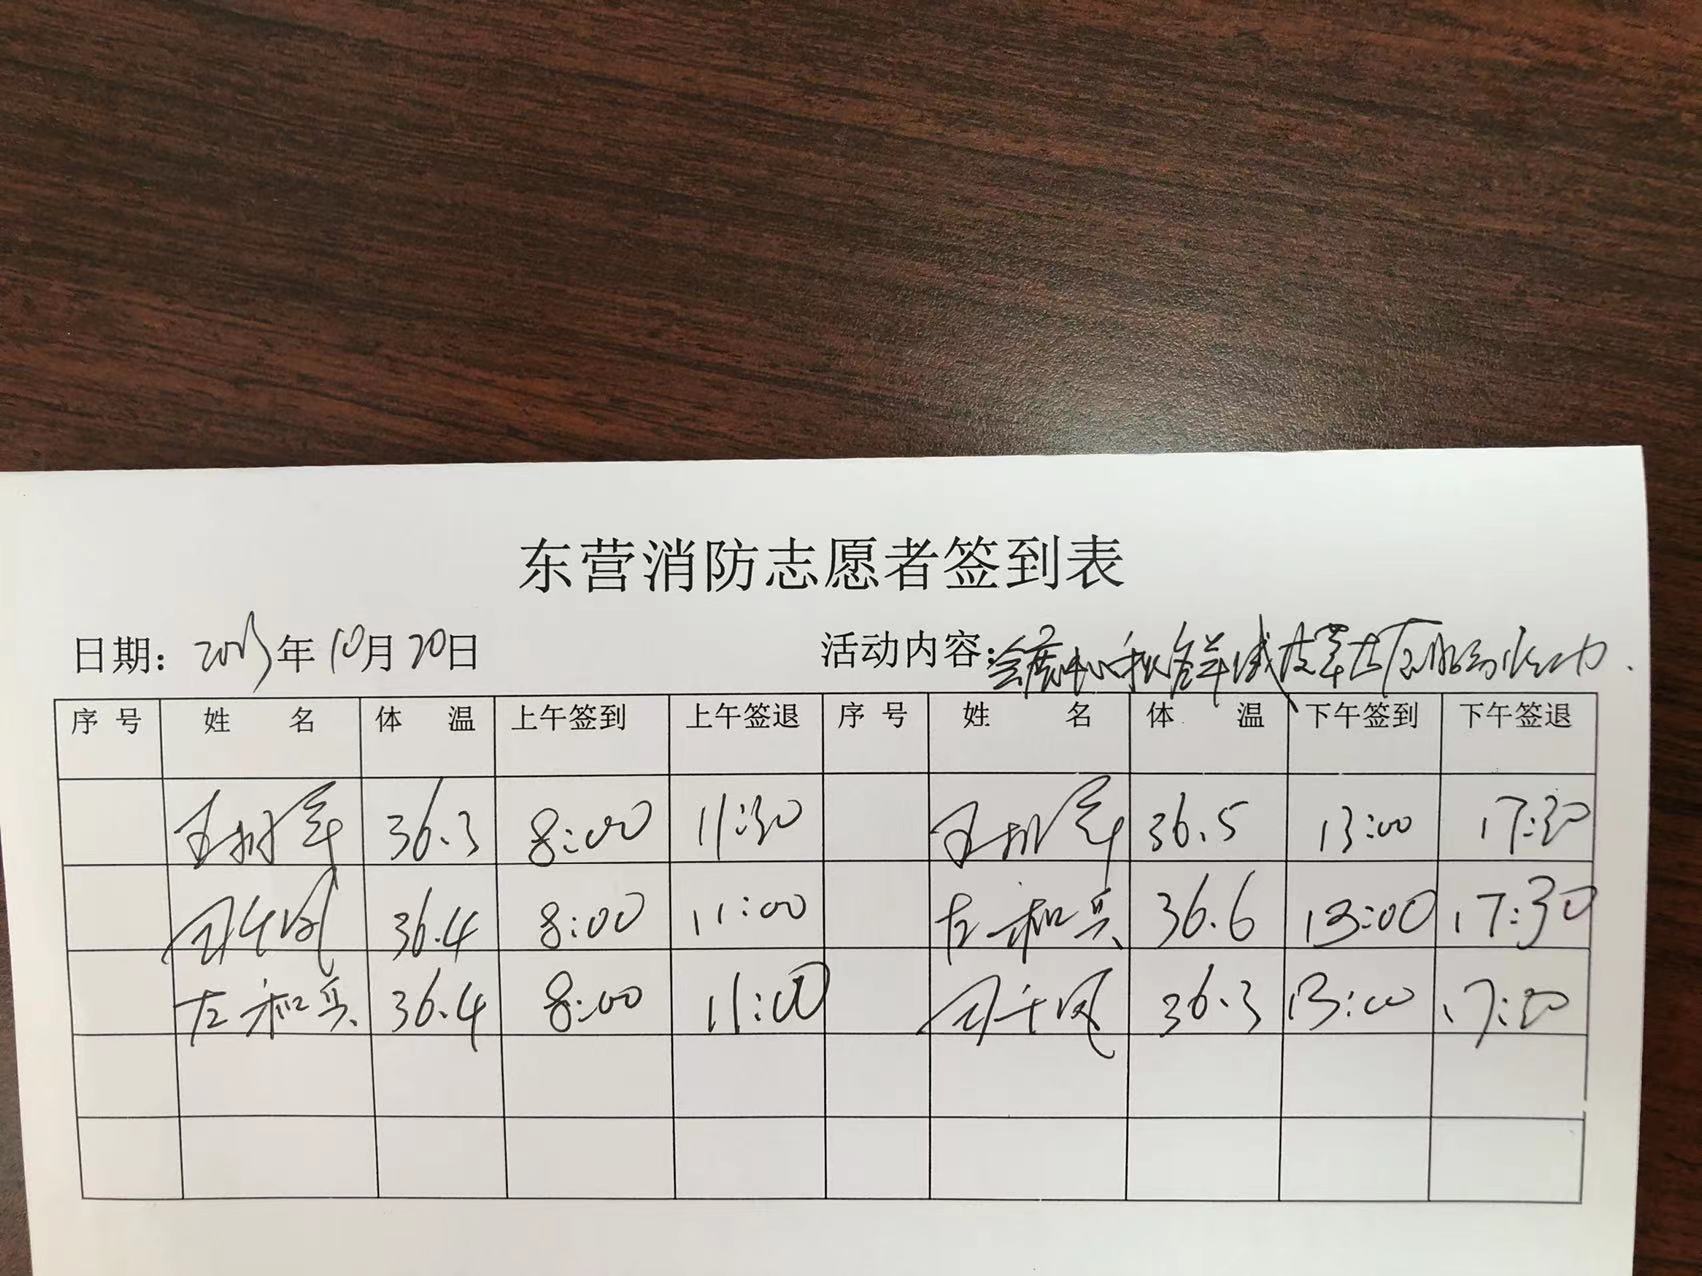 东营消防志愿者签到表
日期: 2023年10月20日 活动内容:
序号 姓名 体温 上午签到 上午签退 序号 姓名 体温 下午签到 下午签退
王树军 36.3 8:00 11:30 王树军 36.5 13:00 17:30
36.4 8:00 11:00 左和兵 36.6 13:00 17:30
左和兵 36.4 8:00 11:00 36.3 13:00 17:30